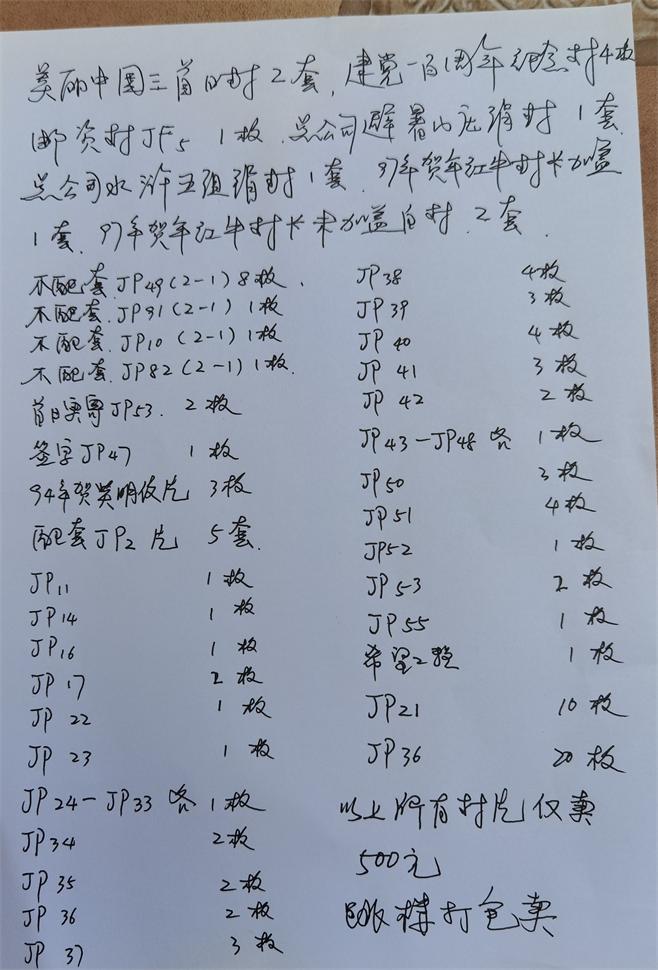 美丽中国三首日封2套,建党一百周年纪念封4枚
邮资封JF5 1枚.总公司避暑山庄绢封1套.
总公司水浒五组绢封1套.97年贺年红牛封卡加盖
1套.97年贺年红牛封卡未加盖白封.2套.
不配套.JP49(2-1)8枚.
不配套.JP91(2-1)1枚
不配套.JP10(2-1)1枚
不配套.JP82(2-1)1枚.
首日实寄JP53. 2枚
签字JP47 1枚
94年贺英明信片 3枚
配套JP2片 5套.
JP11 1枚
JP14 1枚
JP16 1枚
JP17 2枚
JP22 1枚
JP23 1枚
JP24-JP33各1枚
JP34 2枚
JP35 2枚
JP36 2枚
JP37 3枚
JP38 4枚
JP39 3枚
JP40 4枚
JP41 3枚
JP42 2枚
JP43-JP48各1枚
JP50 3枚
JP51 4枚
JP52 1枚
JP53 2枚
JP55 1枚
希望工程 1枚
JP21 10枚
JP36 20枚
以上所有封片仅卖
500元
打包卖